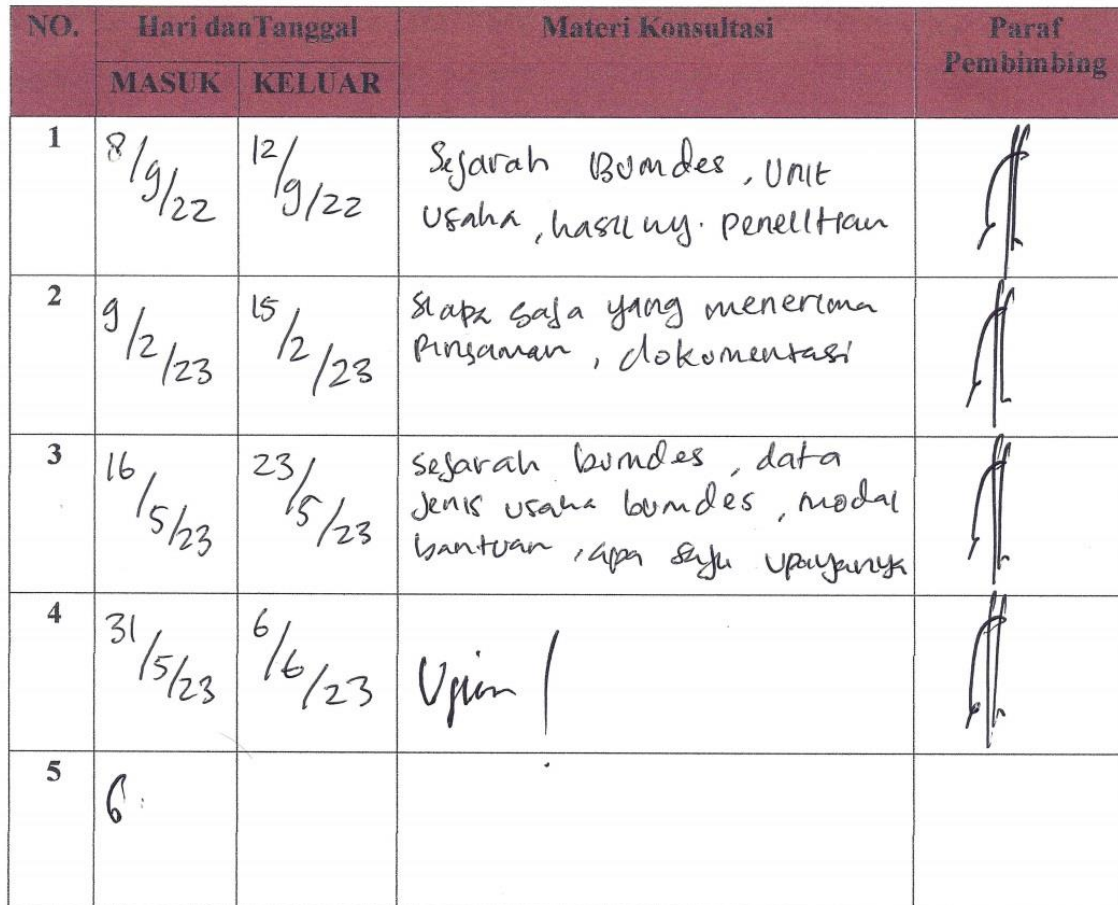 NO. Hari danTanggal Materi Konsultasi Paraf
MASUK KELUAR Pembimbing
1 8/9/22 12/9/22 Sejarah Bumdes, Unit
usaha, hasil penelitian
2 9/2/23 15/2/23 siapa saja yang menerima
Pinjaman, dokumentasi
3 16/5/23 23/5/23 sejarah bumdes, data
Jenis usaha bumdes, modal
bantuan, apa saja upayanya
4 31/5/23 6/6/23 Ujian
5 6